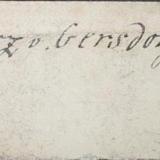 z v. Gersdo